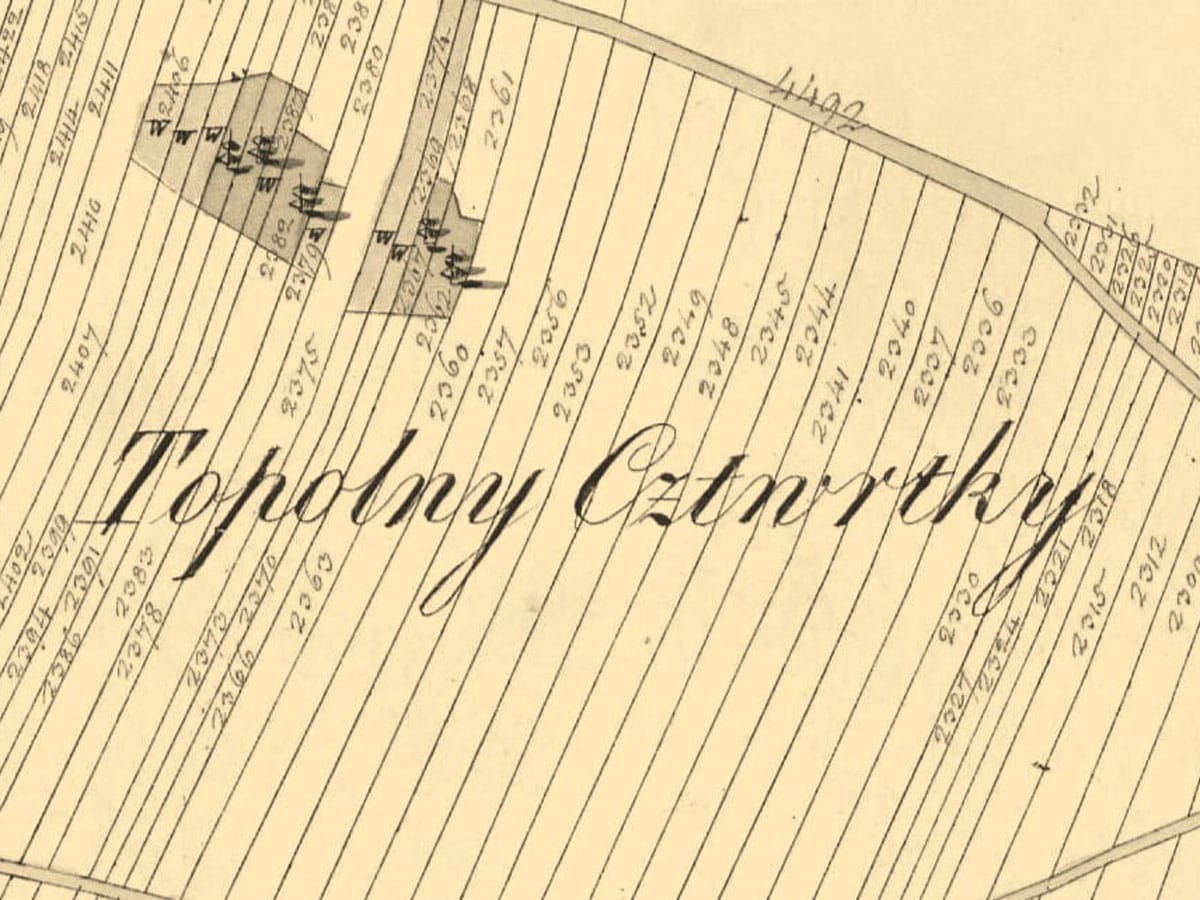 2418
2415
2411
2414
2406
2380
2374
2368
2361
4492
2387
2369
2410
2382
2379
2332
2331
2320
2319
2407
2375
2360
2357
2356
2353
2352
2349
2348
2345
2344
2341
2340
2337
2336
2333
Topolny Cztwrtky
2402
2399
2391
2394
2386
2383
2378
2373
2370
2366
2363
2330
2327
2324
2321
2318
2315
2312